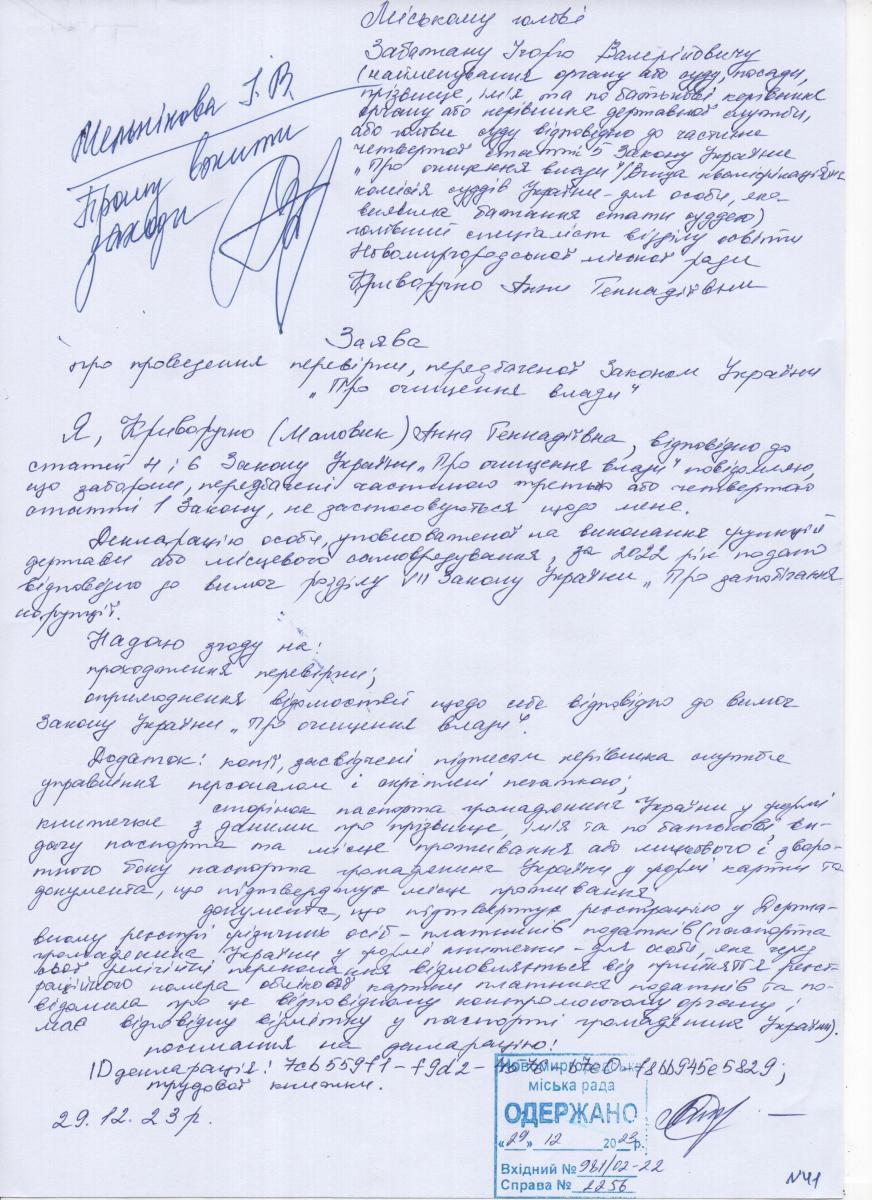 Міському голові
Забажану Ігорю Валерійовичу
(найменування органу або суду, посади,
прізвище, ім'я та по батькові керівника
органу або керівника державної служби,
або голови суду відповідно до частини
четвертої статті 5 Закону України
„Про очищення влади"/Вища кваліфікаційна
комісія суддів України - для особи, яка
виявила бажання стати суддею)
головний спеціаліст відділу освіти
Новомиргородської міської ради
Криворучко Анни Геннадіївни
Мельнікова І.В.
Прошу вжити
заходи
Заява
про проведення перевірки, передбаченої Законом України
„Про очищення влади"
Я, Криворучко (Маловик) Анна Геннадіївна, відповідно до
статей 4 і 6 Закону України „Про очищення влади" повідомляю,
що заборони, передбачені частиною третьою або четвертою
статті 1 Закону, не застосовуються щодо мене.
Декларацію особи, уповноваженої на виконання функцій
держави або місцевого самоврядування, за 2022 рік подано
відповідно до вимог розділу VII Закону України „Про запобігання
корупції.
Надаю згоду на:
проходження перевірки;
оприлюднення відомостей щодо себе відповідно до вимог
Закону України „Про очищення влади".
Додаток: копії, засвідчені підписом керівника служби
управління персоналом і скріплені печаткою;
сторінок паспорта громадянина України у формі
книжечки з даними про прізвище, ім'я та по батькові, ви-
дачу паспорта та місце проживання або лицьового і зворо-
тного боку паспорта громадянина України у формі картки та
документа, що підтверджує місце проживання,
документа, що підтверджує реєстрацію у Держа-
вному реєстрі фізичних осіб - платників податків (паспорта
громадянина України у формі книжечки - для особи, яка через
свої релігійні переконання відмовляється від прийняття реєст-
раційного номера облікової картки платника податків та по-
відомила про це відповідному контролюючому органу і
має відповідну відмітку у паспорті громадянина України).
посилання на декларацію:
ID декларація: 7cb559f1-f9d2- -18bb945e5829;
трудової книжки.
29.12.23р.
Новомиргородська
міська рада
ОДЕРЖАНО
«29» 12 2023р.
Вхідний № 981/02-22
Справа № 2256
№41